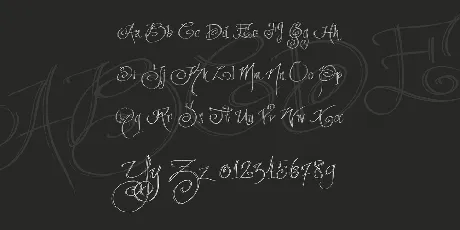 Aa Bb Cc Dd Ee Ff Gg Hh
Ii Jj Kk Ll Mm Nn Oo Pp
Qq Rr Ss Tt Uu Vv Ww Xx
Yy Zz 0123456789
ABCDE